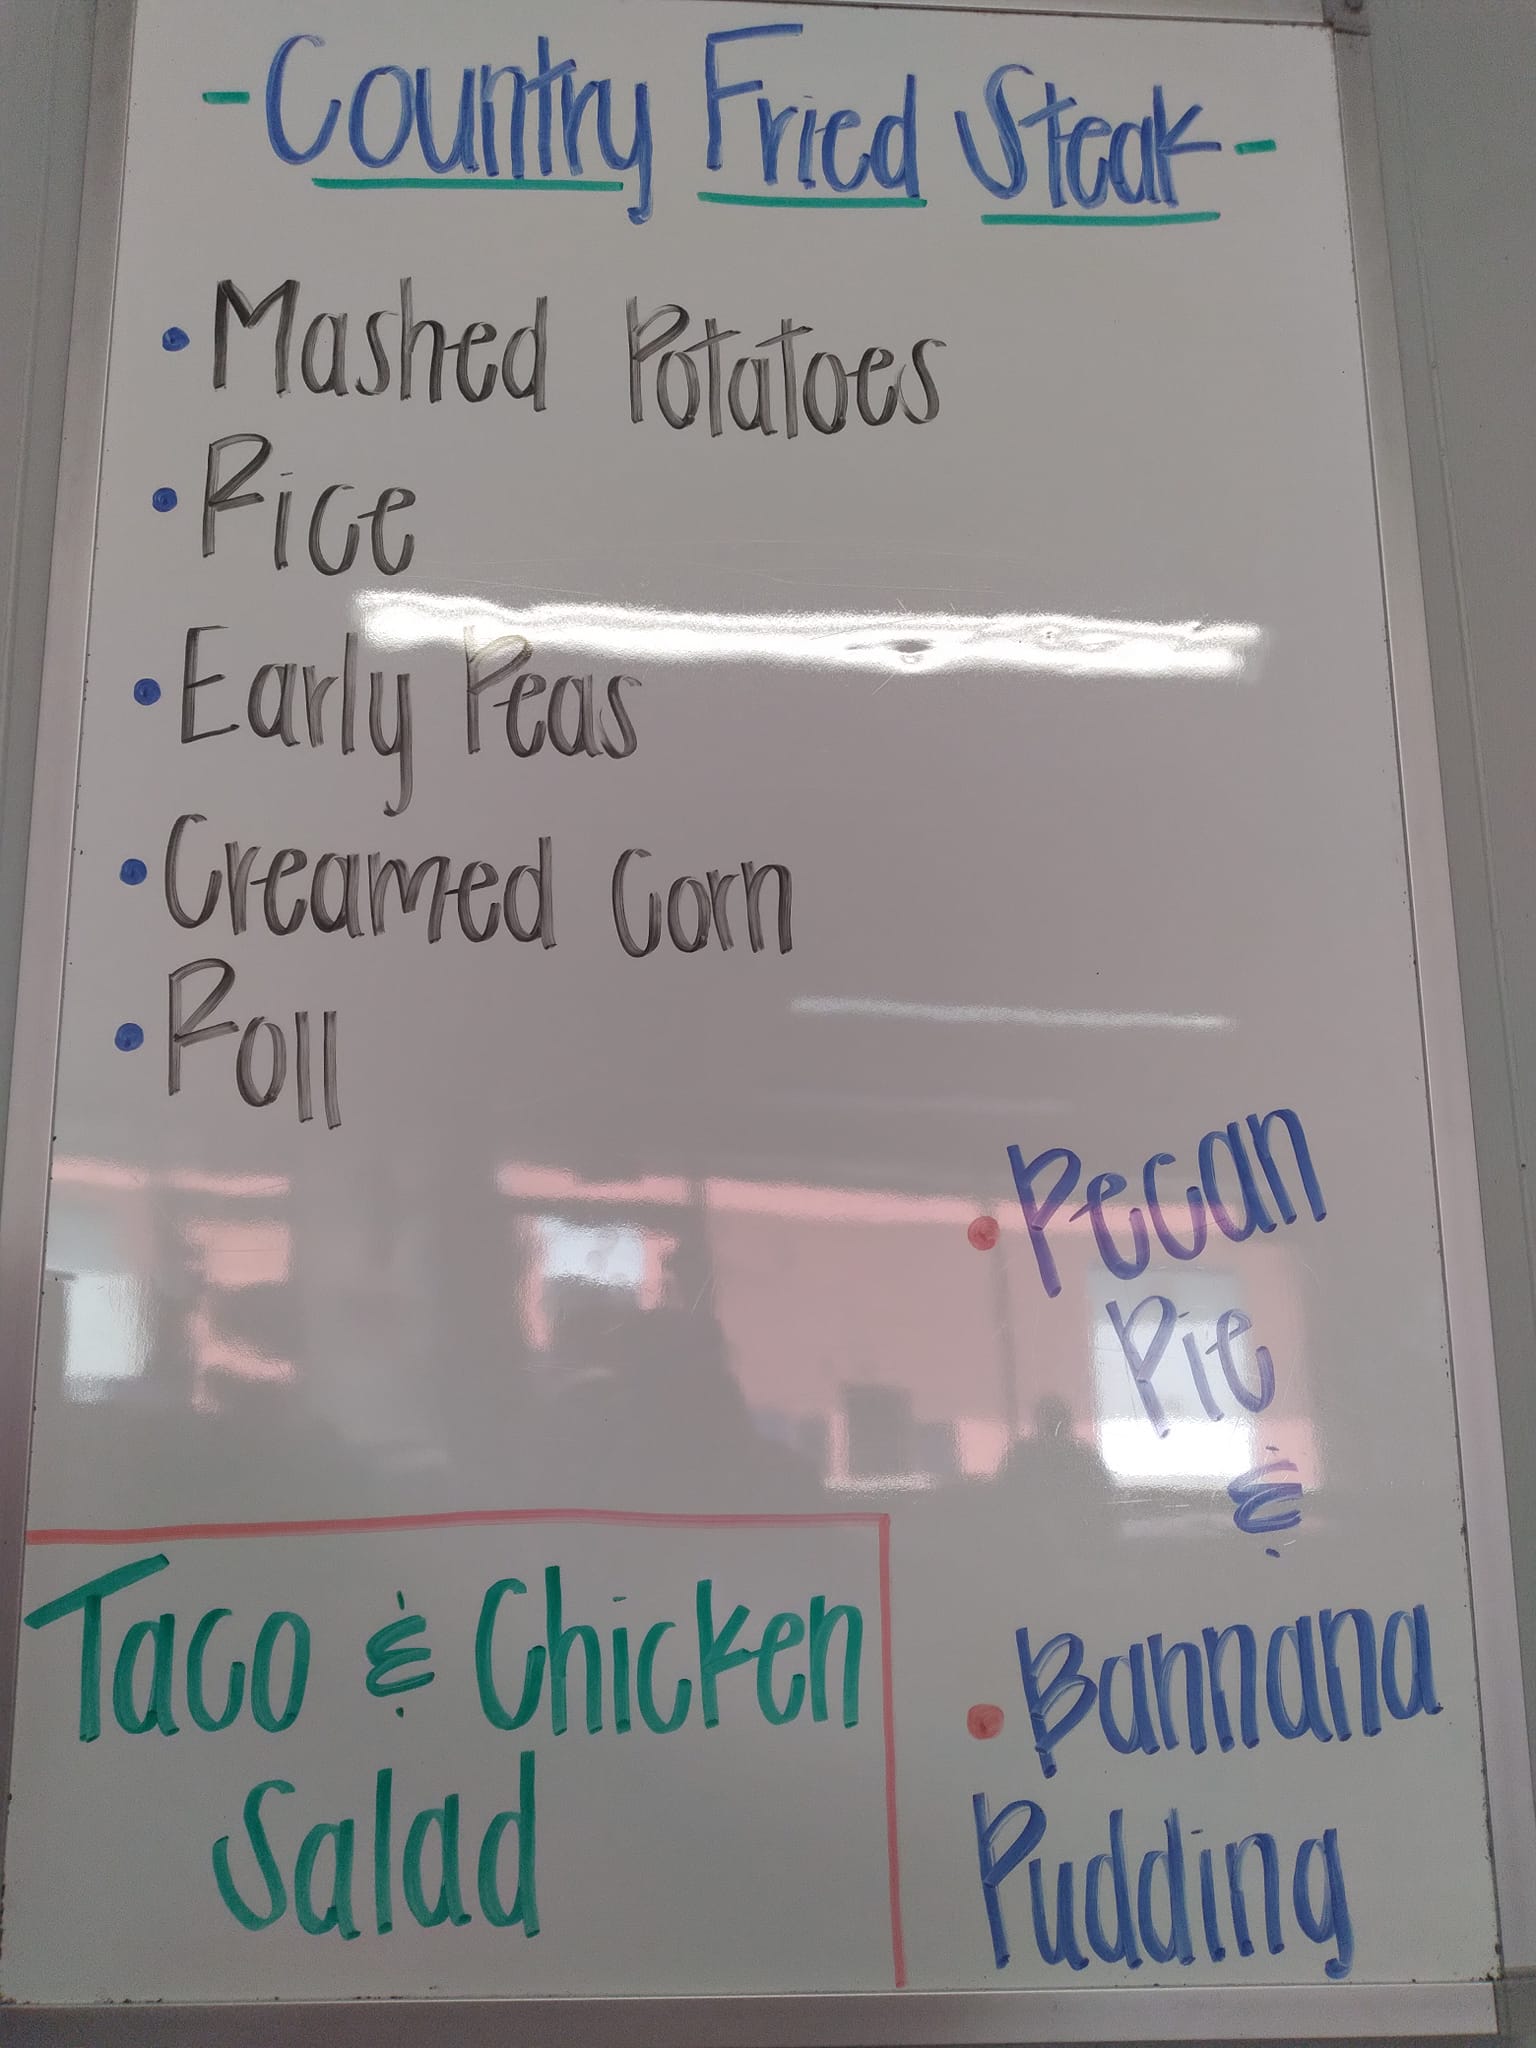 - Country Fried Steak -
• Mashed Potatoes
• Rice
• Early Peas
• Creamed Corn
• Roll
• Pecan
Pie
&
• Bannana
Pudding
Taco & Chicken
Salad